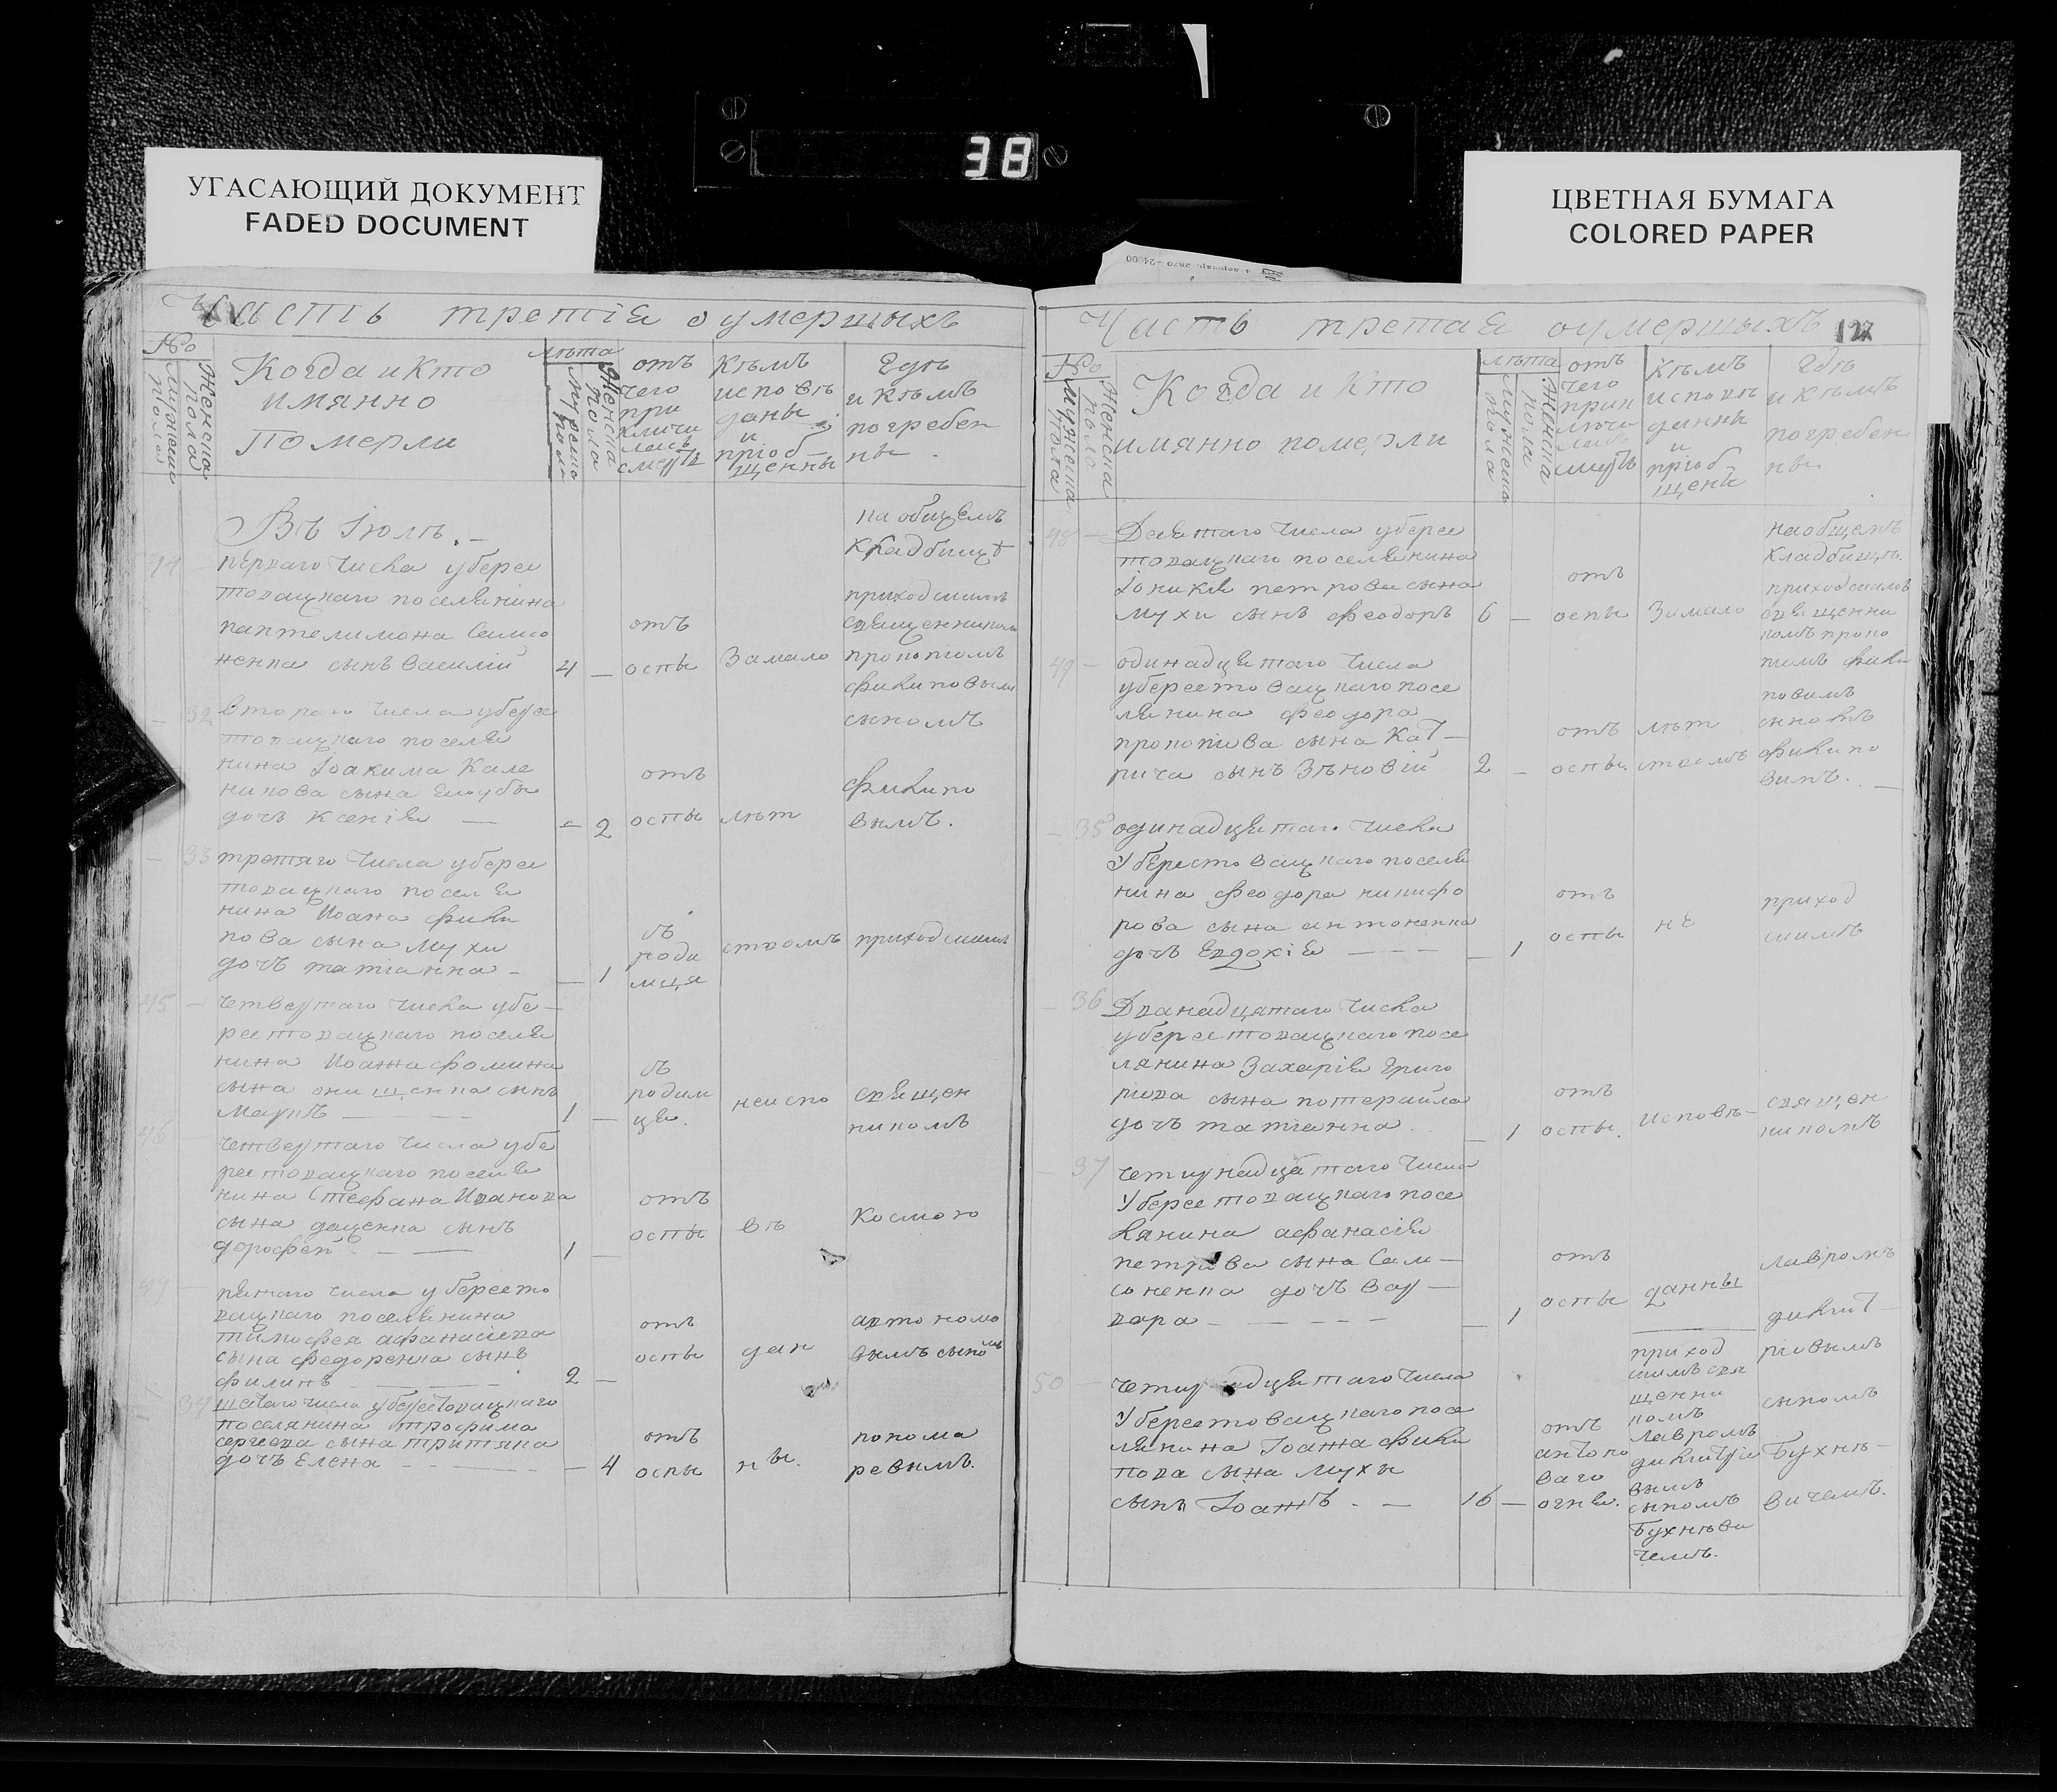 38
УГАСАЮЩИЙ ДОКУМЕНТ
FADED DOCUMENT
ЦВЕТНАЯ БУМАГА
COLORED PAPER
Часть третія оумершыхъ
№
Мужеска пола
Женска пола
Когда и Кто
имянно
померли
лѣта
Мужеска пола
Женска пола
отъ
чего
при
ключи
лась
смерть
Кѣмъ
исповѣ
даны
и
пріоб-
щенны
Гдѣ
и кѣмъ
погребен
ны.
Въ Іюлѣ.
перваго числа уберес
товацкаго поселянина
пантелимона Самсо
ненка сынъ василій 4 —
отъ
оспы
Замало
на общемъ
Кладбищѣ
приходскимъ
священникомъ
прокопіемъ
филиповымъ
сыномъ
32 втораго числа уберес
товацкаго поселя
нина Іоакима Кале
никова сына
дочъ Ксенія — — 2
отъ
оспы
лѣт
филипо
вымъ.
33 третяго числа уберес
товацкаго поселя
нина Иоана фили
пова сына мухи
дочъ татіанна — — 1
съ
роди
мця
ствомъ
приходскимъ
45 четвертаго числа убе-
рестовацкаго поселя
нина Иоана фомина
сына онищенка сынъ
1 —
съ
родим
ця.
неиспо
священ
никомъ
46 четвертаго числа убе
рестовацкаго поселя
нина Стефана Иванова
сына даценка сынъ
дорофей — 1 —
отъ
оспы
вѣ
Космою
47 пятаго числа убересто
вацкаго поселянина
тимофея афанасіева
сына федоренка сынъ
филипъ 2 —
отъ
оспы
дан
автономо
вымъ сыномъ
34 шестаго числа уберестовацкаго
поселянина трофима
сергиева сына
дочъ Елена — 4
отъ
оспы
ны.
понома
ревымъ.
Часть третая оумершыхъ
122
№
Мужеска пола
Женска пола
Когда и Кто
имянно померли
лѣта
Мужеска пола
Женска пола
отъ
чего
прик
лючи
лась
смерть
Кѣмъ
исповѣ
данны
и
пріоб-
щены
Гдѣ
и кѣмъ
погребен
ны.
48 — Девятаго числа уберес
товацкаго поселянина
Іоникія петрова сына
мухи сынъ феодоръ 6 —
отъ
оспы
Замало
на общемъ
кладбищѣ.
приходскимъ
священни
комъ проко
піемъ фили
повимъ
49 — одинадцятаго числа
уберестовацкаго посе
лянина феодора
прокопіева сына
сынъ Зѣновій 2 —
отъ
оспы.
лѣт
ствомъ
сыномъ
филипо
вимъ.
— 35 одинадцятаго числа
Уберестовацкаго поселя
нина феодора никифо
рова сына антоненка
дочъ Евдокія — — 1
отъ
оспы
не
приход
скимъ
— 36 Дванадцятаго числа
уберестовацкаго посе
лянина Захарія Григо
ріева сына потерайла
дочъ татіанна. — 1
отъ
оспы.
исповѣ-
священ
никомъ
— 37 четирнадцятаго числа
Уберестовацкаго посе
лянина афанасія
петрова сына Сам-
соненка дочъ Вар-
вара — — 1
отъ
оспы
данны
лавромъ
димит-
ріевымъ
50 — четирнадцятаго числа
Уберестовацкаго посе
лянина Іоана фили
пова сына мухы
сынъ Іоанъ — 16 —
отъ
антоно
ваго
огня.
приход
скимъ свя
щенни
комъ
лавромъ
димитріе
вымъ
сыномъ
Бухнѣви
чемъ.
сыномъ
Бухнѣ-
вичемъ.